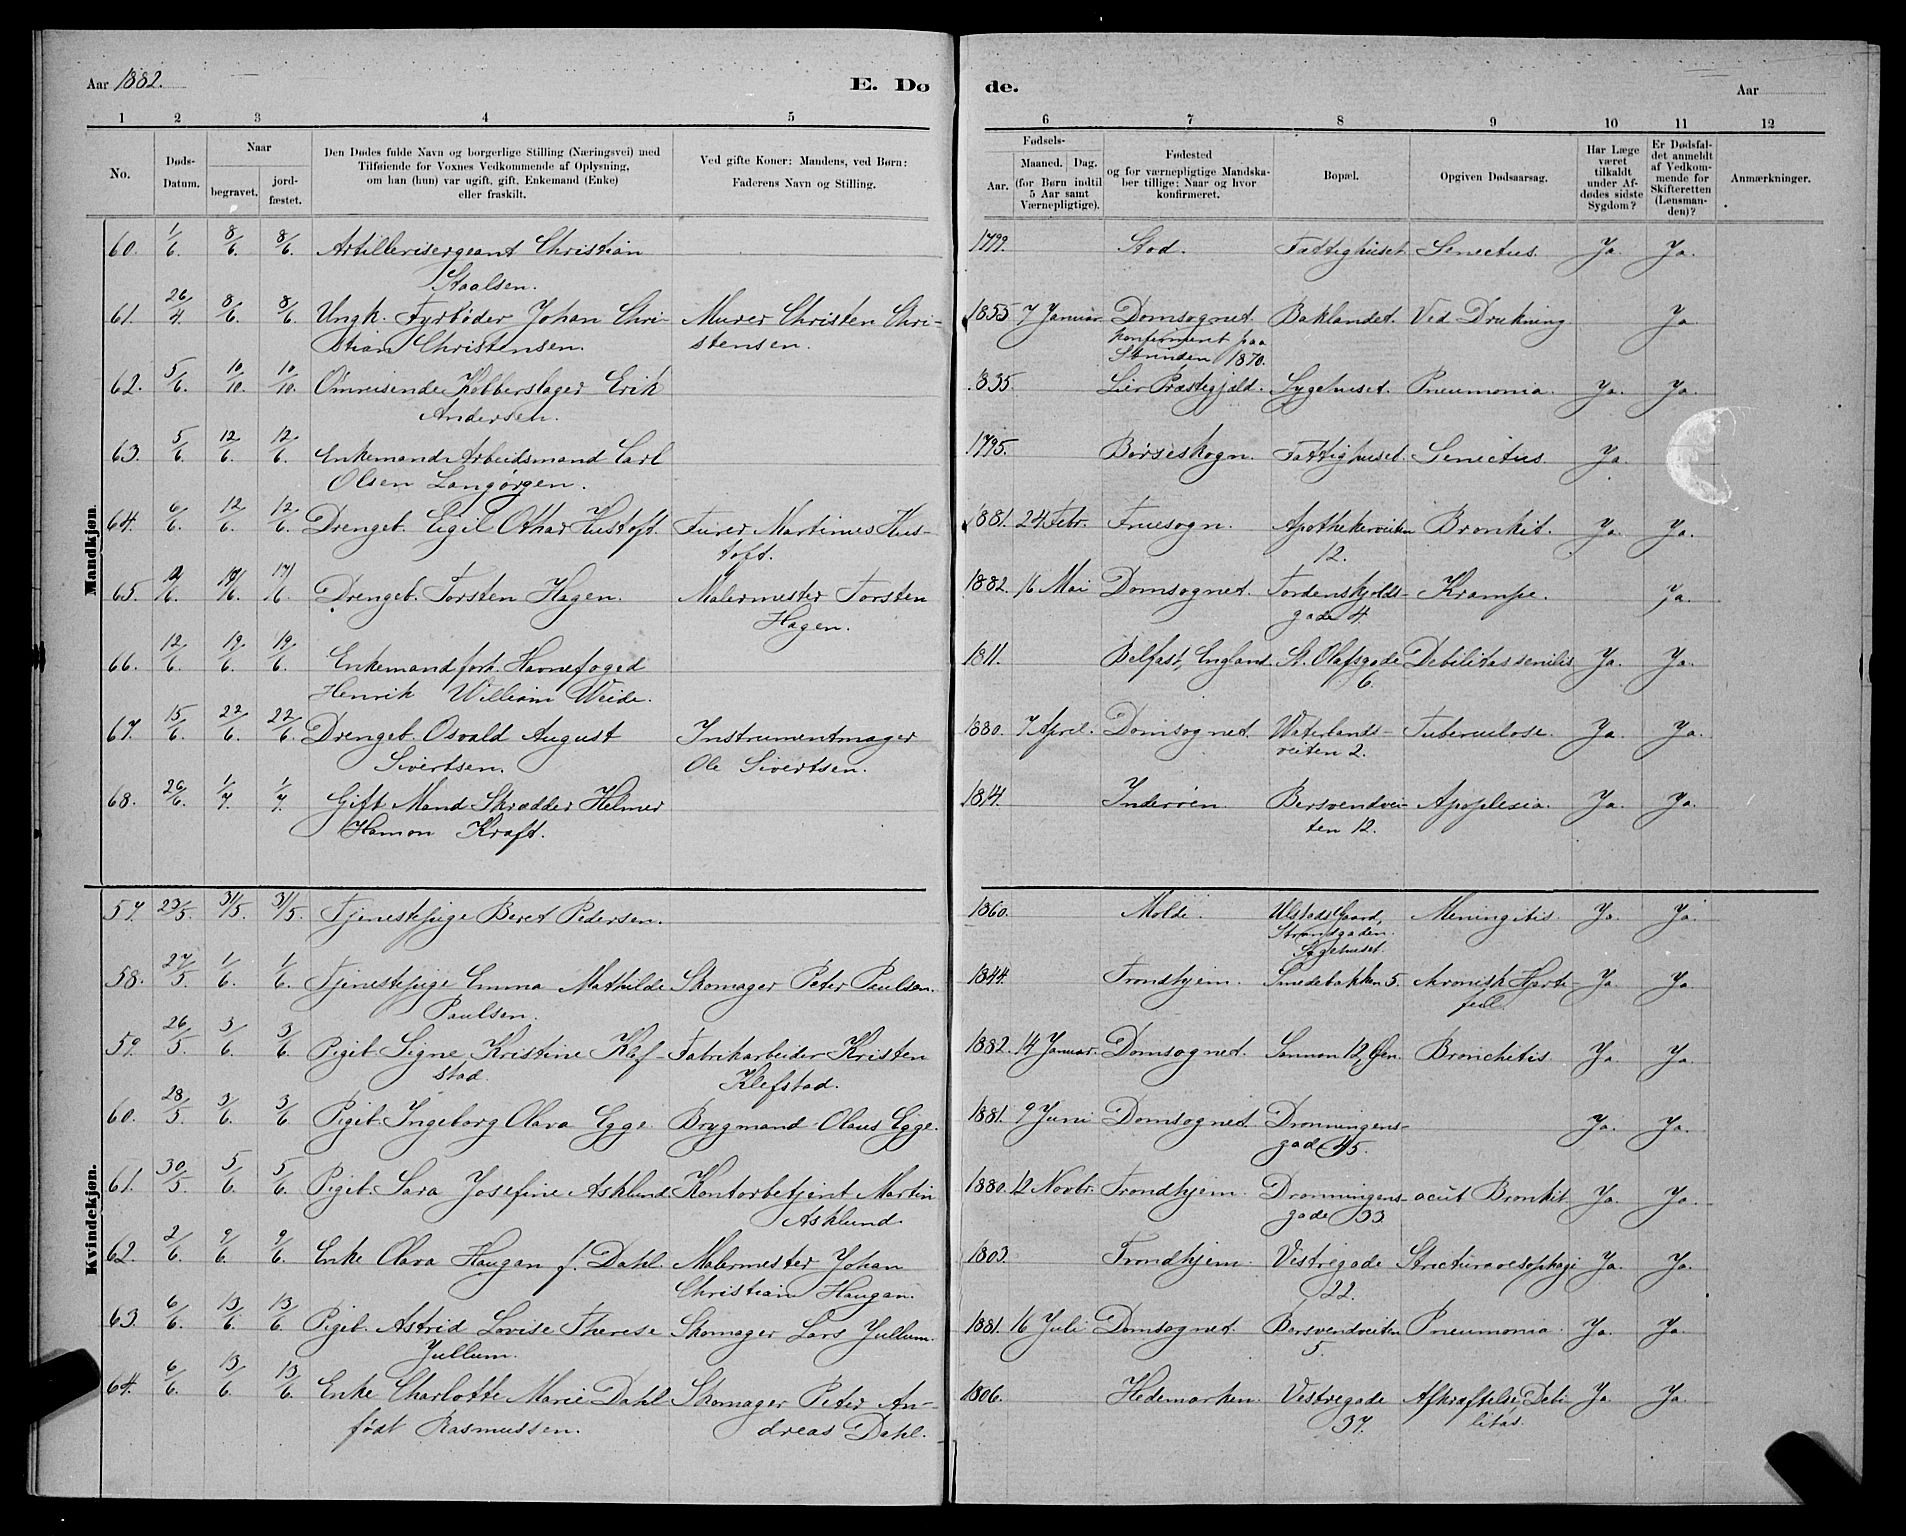 Aar 1882.
E. Dø
de.
Aar
1 2 3 4 5
6 7 8 9 10 11 12
No.
Døds-
Datum.
Naar
begravet.
jord-
fæstet.
Den Dødes fulde Navn og borgerlige Stilling (Næringsvei) med
Tilføiende for Voxnes Vedkommende af Oplysning,
om han (hun) var ugift, gift, Enkemand (Enke)
eller fraskilt.
Ved gifte Koner: Mandens, ved Børn:
Faderens Navn og Stilling.
Fødsels-
Aar.
Maaned. Dag.
(for Børn indtil
5 Aar samt
Værnepligtige).
Fødested
og for værnepligtige Mandska-
ber tillige: Naar og hvor
konfirmeret.
Bopæl.
Opgiven Dødsaarsag.
Har Læge
været
tilkaldt
under Af-
dødes sidste
Sygdom?
Er Dødsfal-
det anmeldt
af Vedkom-
mende for
Skifteretten
(Lensman-
den)?
Anmærkninger.
Mandkjøn.
60. 1/6. 8/6. 8/6. Artillerisergeant Christian 1799. Stod. Fattighuset. Senectus. Ja. Ja.
Staalsen.
61. 26/4 8/6. 8/6. Ungk. Fyrbøder Johan Chri- Murer Christen Chri- 1855 7 Januar Domsognet. Baklandet. Ved Drukning Ja.
stian Christensen. stensen. Konfirmeret paa
Strinden 1870.
62. 5/6. 10/10. 10/10. Omreisende Kobberslager Erik 1835. Lier Præstegjeld. Sygehuset. Pneumonia. Ja. Ja.
Andersen.
63. 5/6. 12/6. 12/6. Enkemand Arbeidsmand Carl 1795. Børseskogn. Fattighuset. Senectus. Ja.
Olsen Langørgen.
64. 6/6. 12/6. 12/6. Drengeb. Eigil Othar Hustoft. Furer Martinus Hus- 1881. 24 Febr. Fruesogn. Apothekerveiten Bronkit. Ja. Ja.
toft. 12.
65. 17/6. 17/6. Drengeb. Torsten Hagen. Malermester Torsten 1882. 16 Mai Domsognet. Tordenskjolds- Krampe. Ja.
Hagen. gade 4.
66. 12/6. 19/6. 19/6. Enkemand forh. Havnefoged 1811. Belfast, England St. Olafsgade Debilitas senilis Ja. Ja.
Henrik William Weide. 6.
67. 15/6. 22/6. 22/6. Drengeb. Osvald August Instrumentmager 1880. 7 April. Domsognet. Waterlands- Tuberculose. Ja. Ja.
Sivertsen. Ole Sivertsen. veiten 2.
68. 26/6. 1/7. 1/7. Gift Mand Skrædder Helmer Inderøen. Bersvendvei- Apoplexia. Ja. Ja.
Hamon Kraft. ten 12.
Kvindekjøn.
57. 23/5. 31/5. 31/5. Tjenestepige Beret Pedersen. 1860. Molde. Ulstads Gaard, Meningitis. Ja. Ja.
Strandgaden.
Sygehuset.
58. 27/5. 1/6. 1/6. Tjenestepige Emma Mathilde Skomager Peter Paulsen. 1844. Trondhjem. Smedebakken 5. Kronisk Hjerte- Ja. Ja.
Paulsen. feil.
59. 26/5. 3/6. 3/6. Pigeb. Signe Kristine Klef- Fabrikarbeider Kristen 1882. 14 Januar. Domsognet. Sannan 12, Øen. Bronchitis Ja. Ja.
stad. Klefstad.
60. 28/5. 3/6. 3/6 Pigeb. Ingeborg Olava Egge. Brygmand Olaus Egge. 1881. 9 Juni Domsognet. Dronningens- Ja. Ja.
gade 45.
61. 30/5. 5/6. 5/6. Pigeb. Sara Josefine Asklund Kontorbetjent Martin 1880. 12 Novbr. Trondhjem. Dronningens- acut Bronkit Ja. Ja.
Asklund. gade 33.
62. 2/6. 9/6. 9/6. Enke Olava Haugan f. Dahl. Malermester Johan 1803. Trondhjem. Vestregade Strictura oesophagi Ja. Ja.
Christian Haugan. 22.
63. 6/6. 13/6. 13/6 Pigeb. Astrid Lovise Therese Skomager Lars Jullum. 1881. 16 Juli Domsognet. Bersvendveiten Pneumonia. Ja. Ja.
Jullum. 5.
64. 6/6. 13/6. 13/6. Enke Charlotte Marie Dahl Skomager Peter An- 1806. Hedemarken. Vestregade Afkræftelse, Debi- Ja. Ja.
født Rasmussen. dreas Dahl. 37. litas.